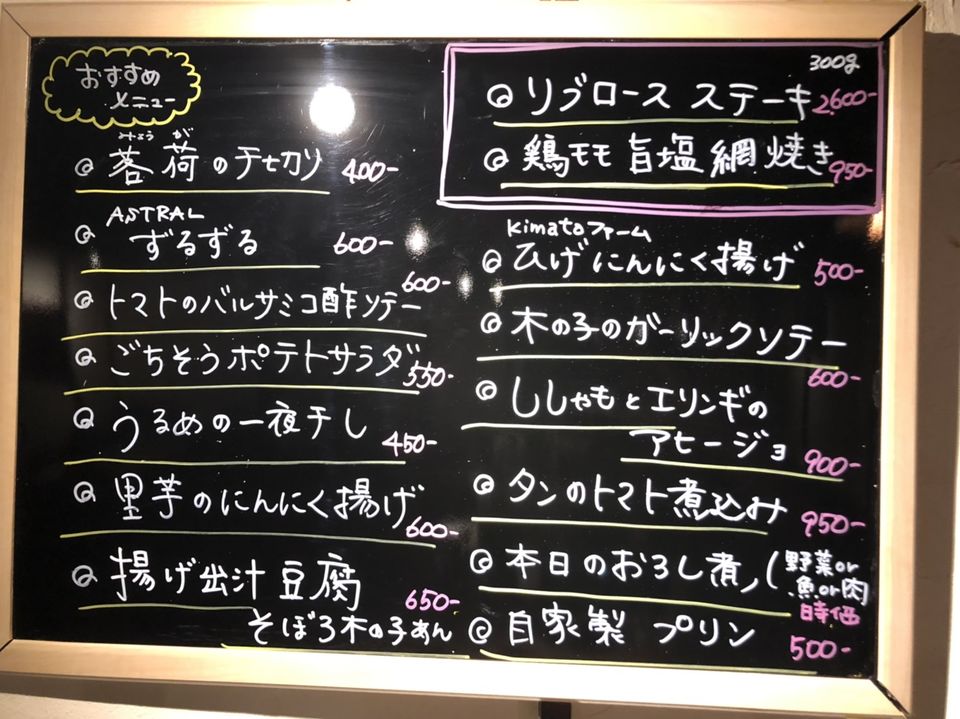 おすすめ
メニュー
みょうが
茗荷のチセカツ 400-
ASTRAL
ずるずる 600-
トマトのバルサミコ酢ソテー 600-
ごちそうポテトサラダ 550-
うるめの一夜干し 450-
里芋のにんにく揚げ 600-
揚げ出汁豆腐 650-
そぼろ木の子あん
300g
リブロース ステーキ 2600-
鶏モモ 旨塩網焼き 950-
Kimatoファーム
ひげにんにく揚げ 500-
木の子のガーリックソテー
600-
ししゃもとエリンギの
アヒージョ 900-
タンのトマト煮込み 950-
本日のおろし煮 (野菜or
魚or肉
時価
自家製 プリン 500-